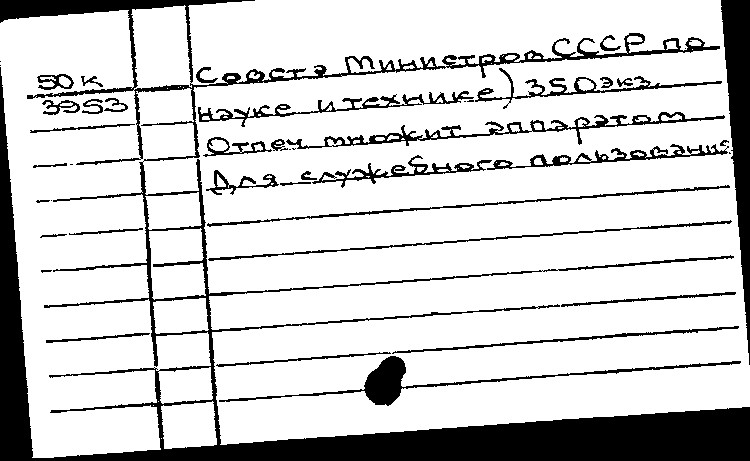 50 к
3953
Совета Министров СССР по
науке и технике) 350 экз.
Отпеч множит аппаратом
Для служебного пользования